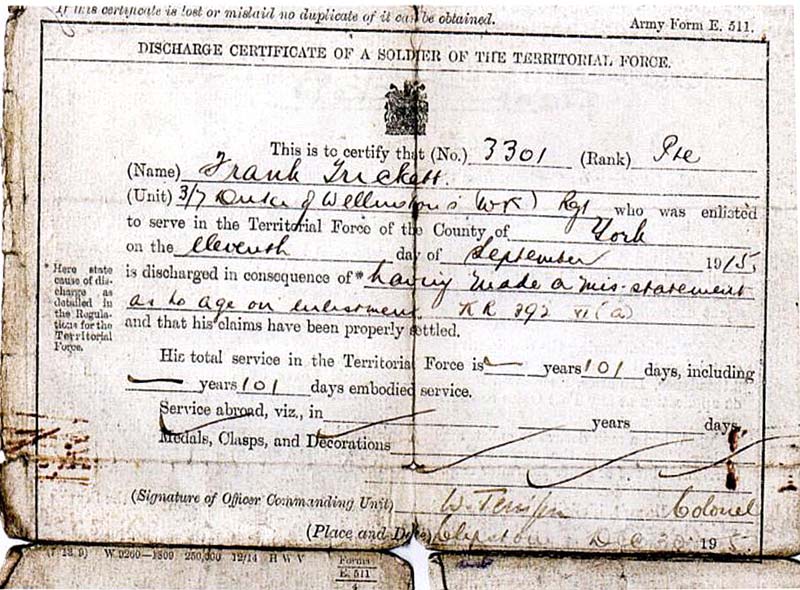 If this certificate is lost or mislaid no duplicate of it can be obtained.
Army Form E. 511.
DISCHARGE CERTIFICATE OF A SOLDIER OF THE TERRITORIAL FORCE.
This is to certify that (No.) 3301 (Rank) Pte
(Name) Frank Trickett.
(Unit) 3/7 Duke of Wellington's (WR) Rgt who was enlisted
to serve in the Territorial Force of the County of York
on the eleventh day of September 1915
is discharged in consequence of * having made a mis-statement
as to age on enlistment KR 392 vi (a)
and that his claims have been properly settled.
* Here state
cause of dis-
charge as
detailed in
the Regula-
tions for the
Territorial
Force.
His total service in the Territorial Force is — years 101 days, including
— years 101 days embodied service.
Service abroad, viz., in years days.
Medals, Clasps, and Decorations
(Signature of Officer Commanding Unit) W. Colonel
(Place and Date) Dec 20 1915.
(7 18 9) W 9260—1809 250,000 12/14 H W V
Forms
E. 511